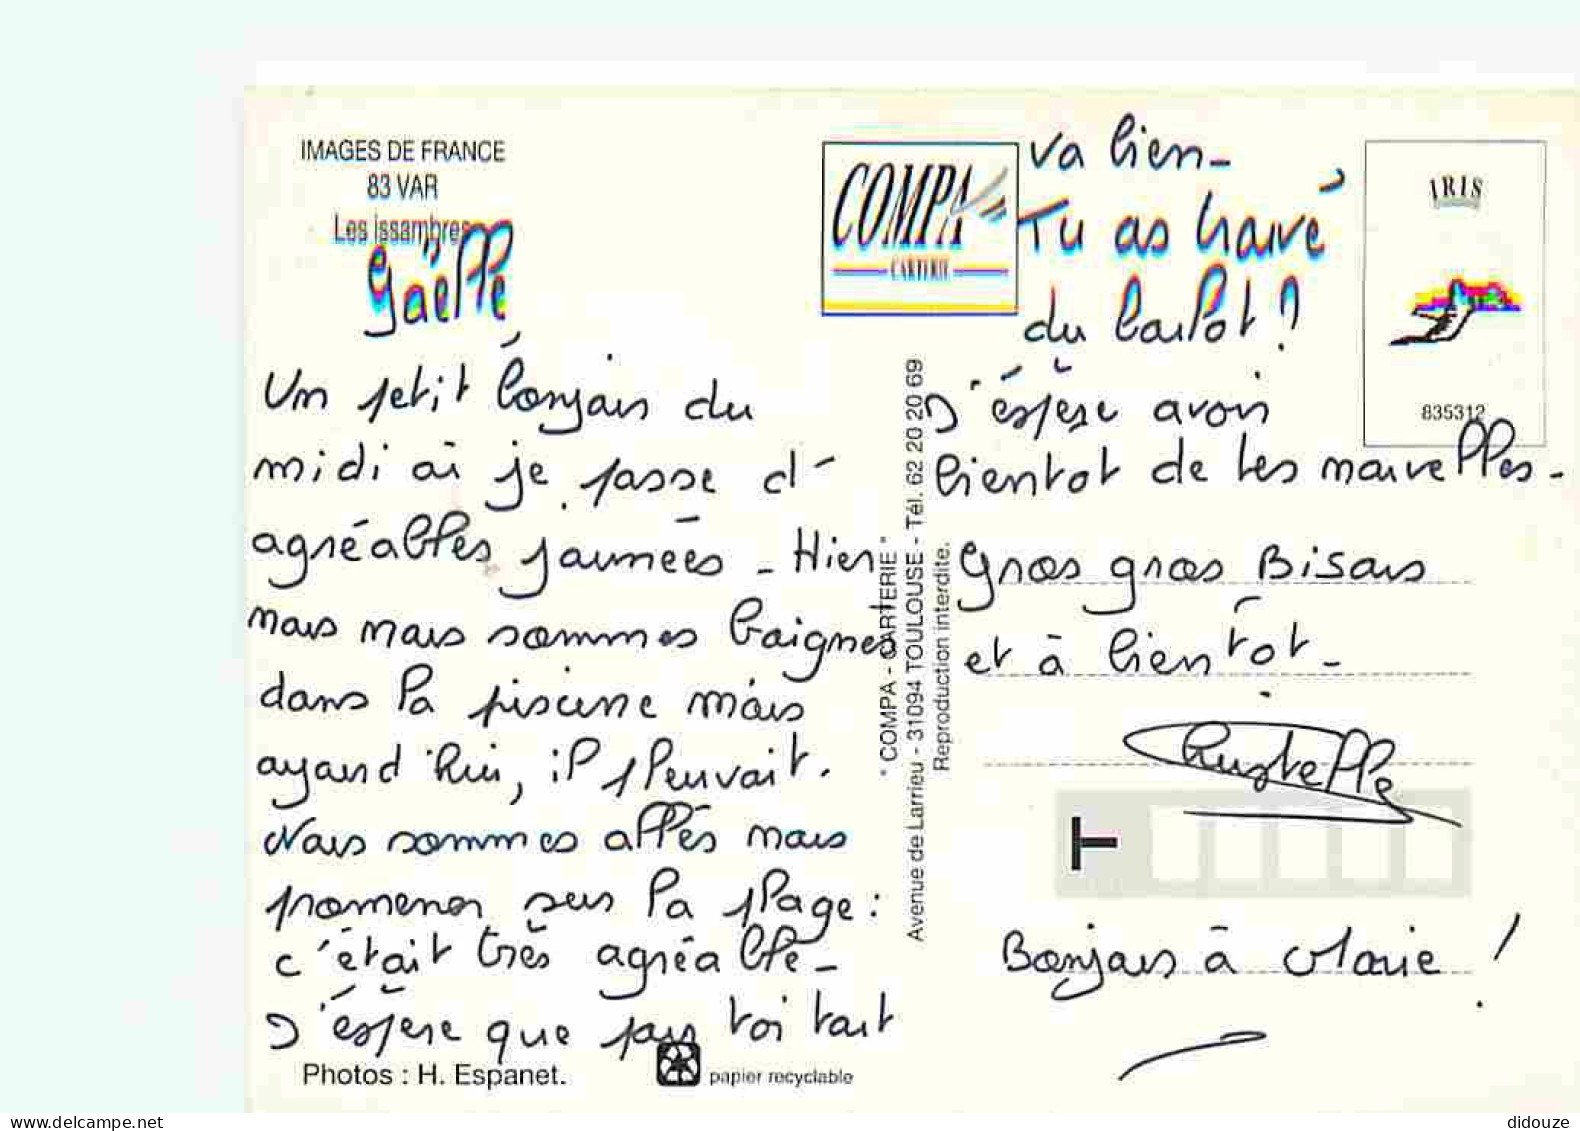 IMAGES DE FRANCE
83 VAR
Les issambres
Gaëlle,
Un petit bonjour du
midi où je passe d'
agréables journées - Hier
nous nous sommes baignés
dans la piscine mais
aujourd'hui, il pleuvait.
Nous sommes allés nous
promener sur la plage :
c'était très agréable -
J'espère que pour toi tout
Photos : H. Espanet.
papier recyclable
COMPA
CARTERIE
" COMPA - CARTERIE "
Avenue de Larrieu - 31094 TOULOUSE - Tél. 62 20 20 69
Reproduction interdite.
va bien -
Tu as trouvé
du boulot ?
J'espère avoir
bientot de tes nouvelles -
Gros gros Bisous
et à bientôt -
Christelle
T
Bonjour à Marie !
IRIS
835312
www.delcampe.net
didouze